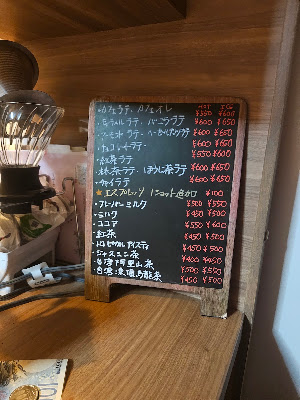 HOT ICE
・カフェラテ、カフェオレ ¥550 ¥600
・キャラメルラテ、バニララテ ¥600 ¥650
ラテ、ヘーゼルナッツラテ ¥600 ¥650
¥600 ¥650
・紅茶ラテ ¥550 ¥600
・抹茶ラテ、ほうじ茶ラテ ¥600 ¥650
・チャイラテ ¥600 ¥650
★エスプレッソ 1ショット追加 ¥100
・フレーバーミルク ¥500 ¥550
・ミルク ¥450 ¥500
・ココア ¥550 ¥600
・紅茶 ¥450 ¥500
・トロピカルアイスティ ¥450 ¥500
・ジャスミン茶 ¥400 ¥450
・台湾阿里山茶 ¥500 ¥550
・台湾凍頂烏龍茶 ¥450 ¥500